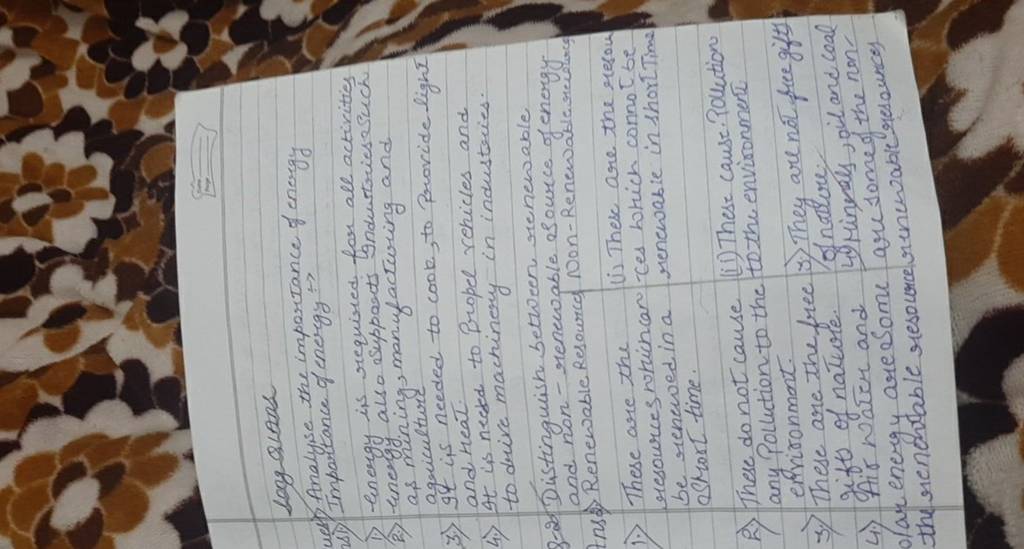 Long Ques
Ques 1> Analyse the importance of energy
Ans 1> Importance of energy :->
1> energy is required for all activities
2> energy also supports Industries such
as mining, manufacturing and
agriculture
3> It is needed to cook, to Provide light
and heat.
4> It is needed to Propel vehicles and
to drive machinery in industries.
Q-2> Distinguish between renewable
and non-renewable of source of energy
Ans 2> Renewable Resource
1.> These are the
resources which can
be renewed in a
short time.
2> These do not cause
any Pollution to the
environment.
3> These are the free
gift of nature.
4> Air water and
olar energy are some
the renewable resource
Non-Renewable
(i) These are the resour
ces which cannot be
renewable in short Time
(ii) These cause Pollution
to the environment
3> They are not free gifts
of nature.
4> Minerals, oil and coal
are some of the non-
renewable resources